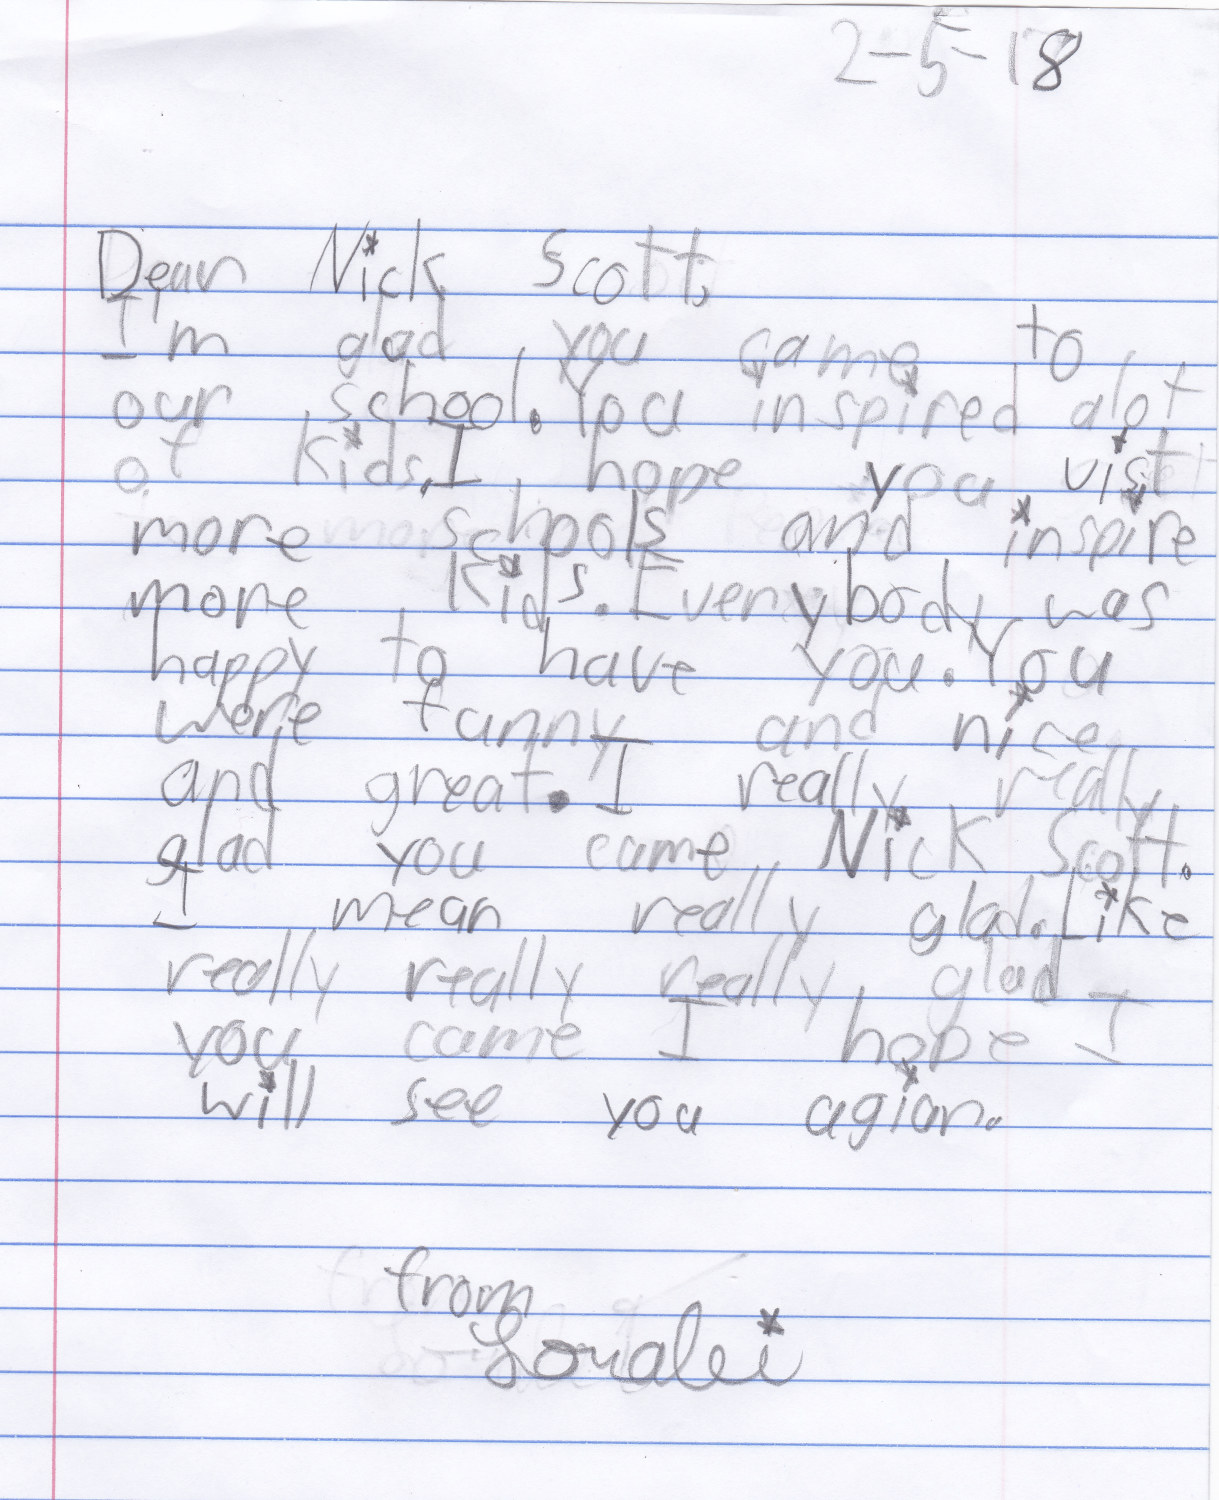 2-5-18
Dear Nick Scott,
I'm glad you came to
our school. You inspired alot
of kids. I hope you vist
more schools and inspire
more kids. Everybody was
happy to have you. You
were funny and nice
and great. I really really
glad you came Nick Scott.
I mean really glad. Like
really really really glad
you came I hope I
will see you agian.
from
Loralei